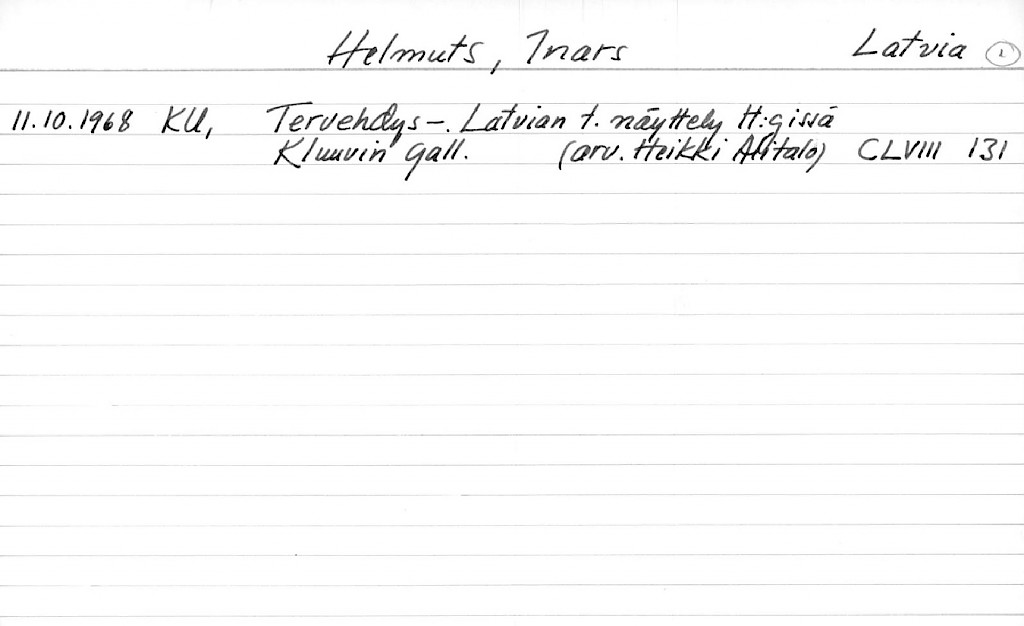 Helmuts, Inars Latvia 1
11.10.1968 KU, Tervehdys-. Latvian t. näyttely H:gissä
Kluuvin gall. (arv. Heikki Alitalo) CLVIII 131